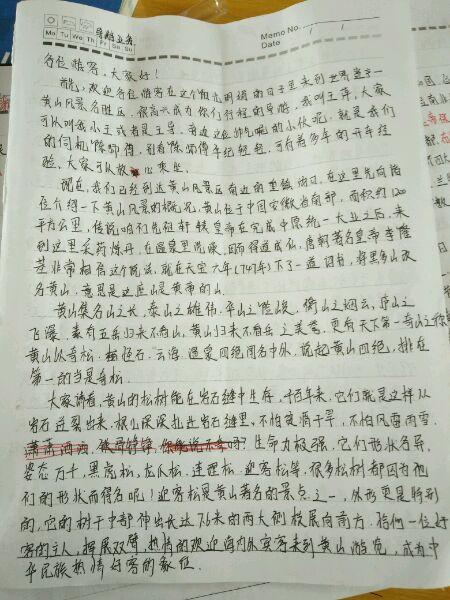 Memo No.
Mo Tu We Th Fr Sa Su
Date / /
导游业务
各位游客,大家好!
首先,欢迎各位游客在这个阳光明媚的日子里来到世界
黄山风景名胜区,很高兴成为你们行程的导游,我叫王萍,大家
可以叫我小王或者是王导,旁边这位帅气的小伙呢,就是我们
的司机陈师傅,别看陈师傅年纪轻轻,可有着多年的开车经
验,大家可以放心乘坐。
现在,我们已经到达黄山风景区南边的重镇汤口,在这里先向诸
位介绍一下黄山风景的概况,黄山位于中国安徽省南部,面积约1200
平方公里,传说咱们先祖轩辕皇帝在完成中原统一大业之后,来
到这里采药炼丹,在温泉里洗澡,因而得道成仙。唐朝著名皇帝李隆
基非常相信这个说法,就在天宝六年(747年)下了一道诏书,将黑多山改
名黄山,意思是这座山是黄帝的山。
黄山集名山之长,泰山之雄伟,华山之险峻,衡山之烟云,庐山之
飞瀑,素有五岳归来不看山,黄山归来不看岳之美誉,更有天下第一奇山之称
黄山以奇松、怪石、云海、温泉四绝闻名中外,说起黄山四绝,排在
第一的当是奇松。
大家请看,黄山的松树能在岩石缝中生存,千百年来,它们就是这样从
岩石迸裂出来,根儿深深扎进岩石缝里,不怕贫瘠干旱,不怕风雷雨雪,
生命力极强,它们形状各异,
姿态万千,黑虎松,龙爪松,连理松,迎客松等,很多松树都因为他
们的形状而得名呢!迎客松是黄山著名的景点之一,外形更是特别
的,它的树干中部伸出长达7.6米的两大侧枝展向前方,恰似一位好
客的主人,挥展双臂,热情的欢迎海内外宾客来到黄山游览,成为中
华民族热情好客的象征。